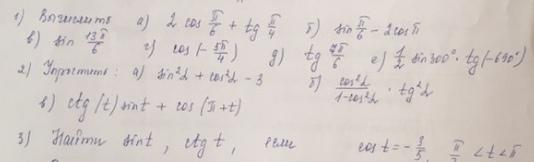 1) Вычислить а) 2 cos π/6 + tg π/4 б) sin π/6 - 2cos π
в) sin 13π/6 г) cos(-5π/4) д) tg 7π/6 е) 1/2 sin 300° · tg(-690°)
2) Упростить: а) sin²α + cos²α - 3 б) cos²α/1-cos²α · tg²α
в) ctg(t) sin t + cos(π+t)
3) Найти sin t, ctg t, если cos t = - π/2 < t < π